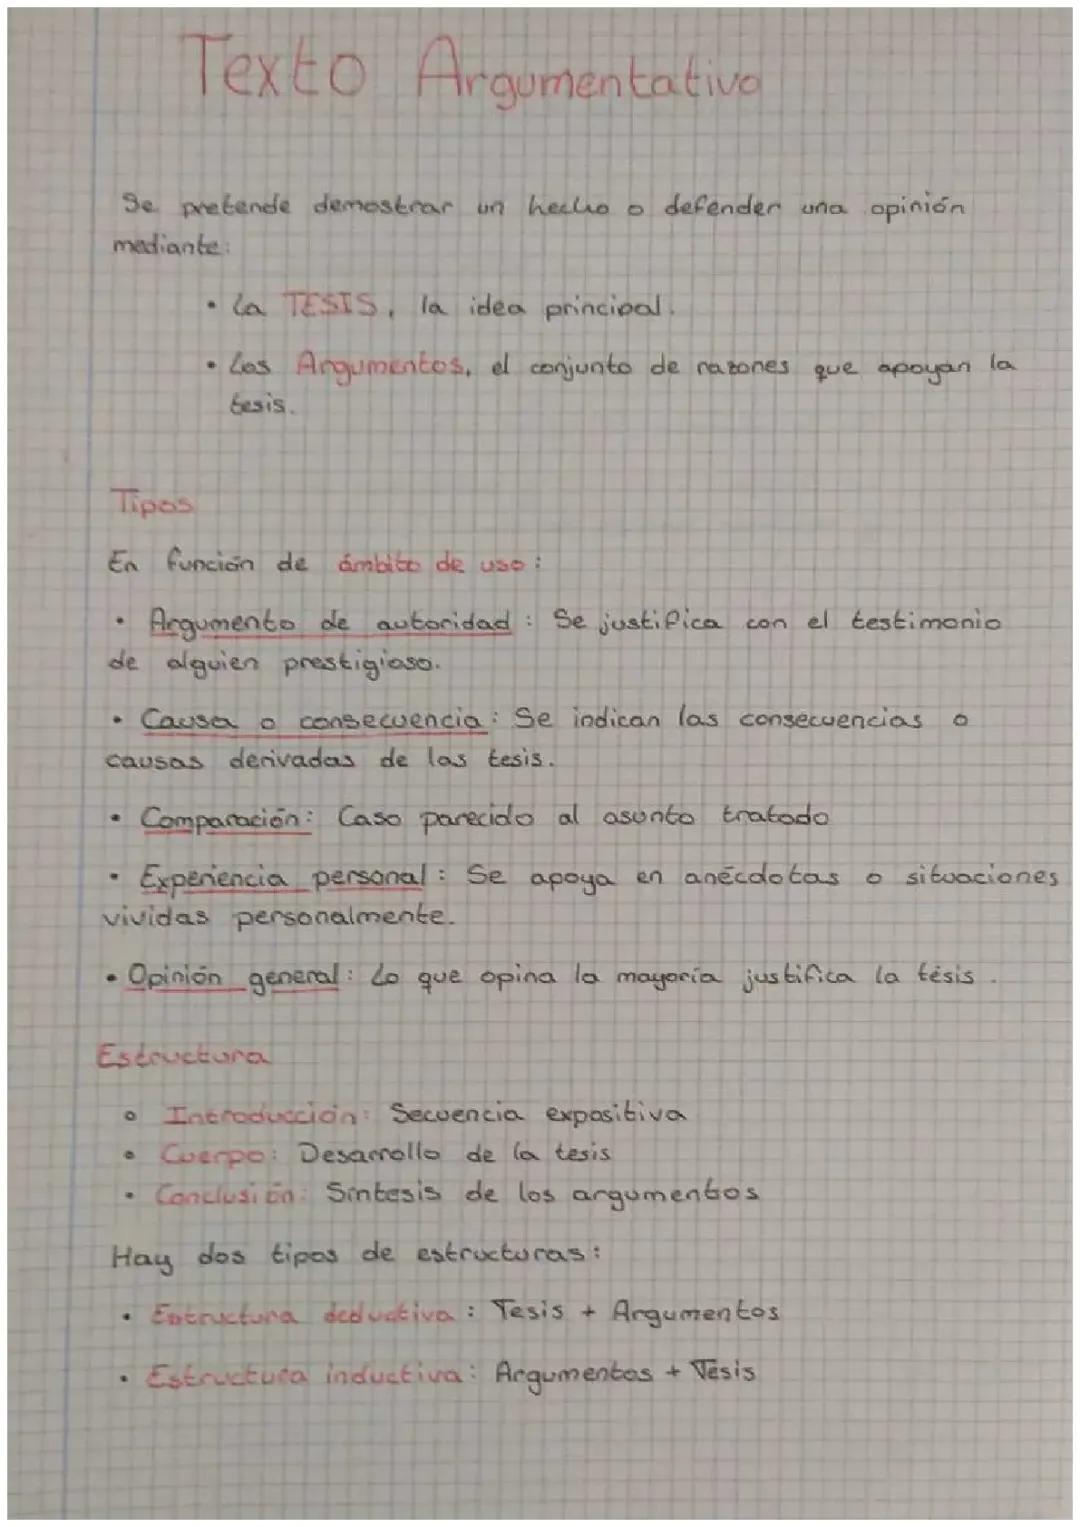 Texto Argumentativo
Se pretende demostrar un hecho o defender una opinión
mediante:
• La TESIS, la idea principal.
• Los Argumentos, el conjunto de razones que apoyan la
tesis.
Tipos
En función de ámbito de uso:
• Argumento de autoridad: Se justifica con el testimonio
de alguien prestigioso.
• Causa o consecuencia: Se indican las consecuencias o
causas derivadas de las tesis.
• Comparación: Caso parecido al asunto tratado
• Experiencia personal: Se apoya en anécdotas o situaciones
vividas personalmente.
• Opinión general: Lo que opina la mayoría justifica la tésis.
Estructura
• Introducción: Secuencia expositiva
• Cuerpo: Desarrollo de la tesis
• Conclusión: Síntesis de los argumentos
Hay dos tipos de estructuras:
• Estructura deductiva: Tesis + Argumentos
• Estructura inductiva: Argumentos + Tesis